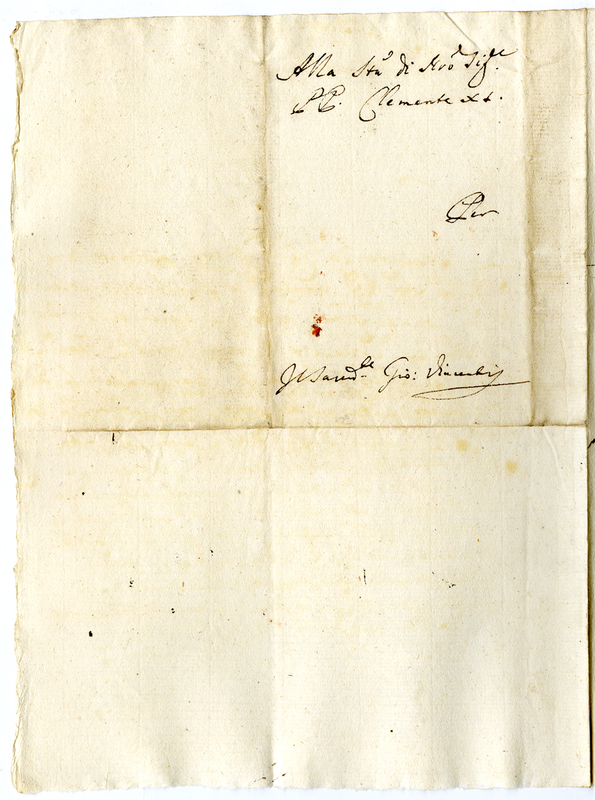 Alla Stà di Nrõ Sigre.
PP. Clemente XI.
Per
Il Sacerdte Gio: Vincenti